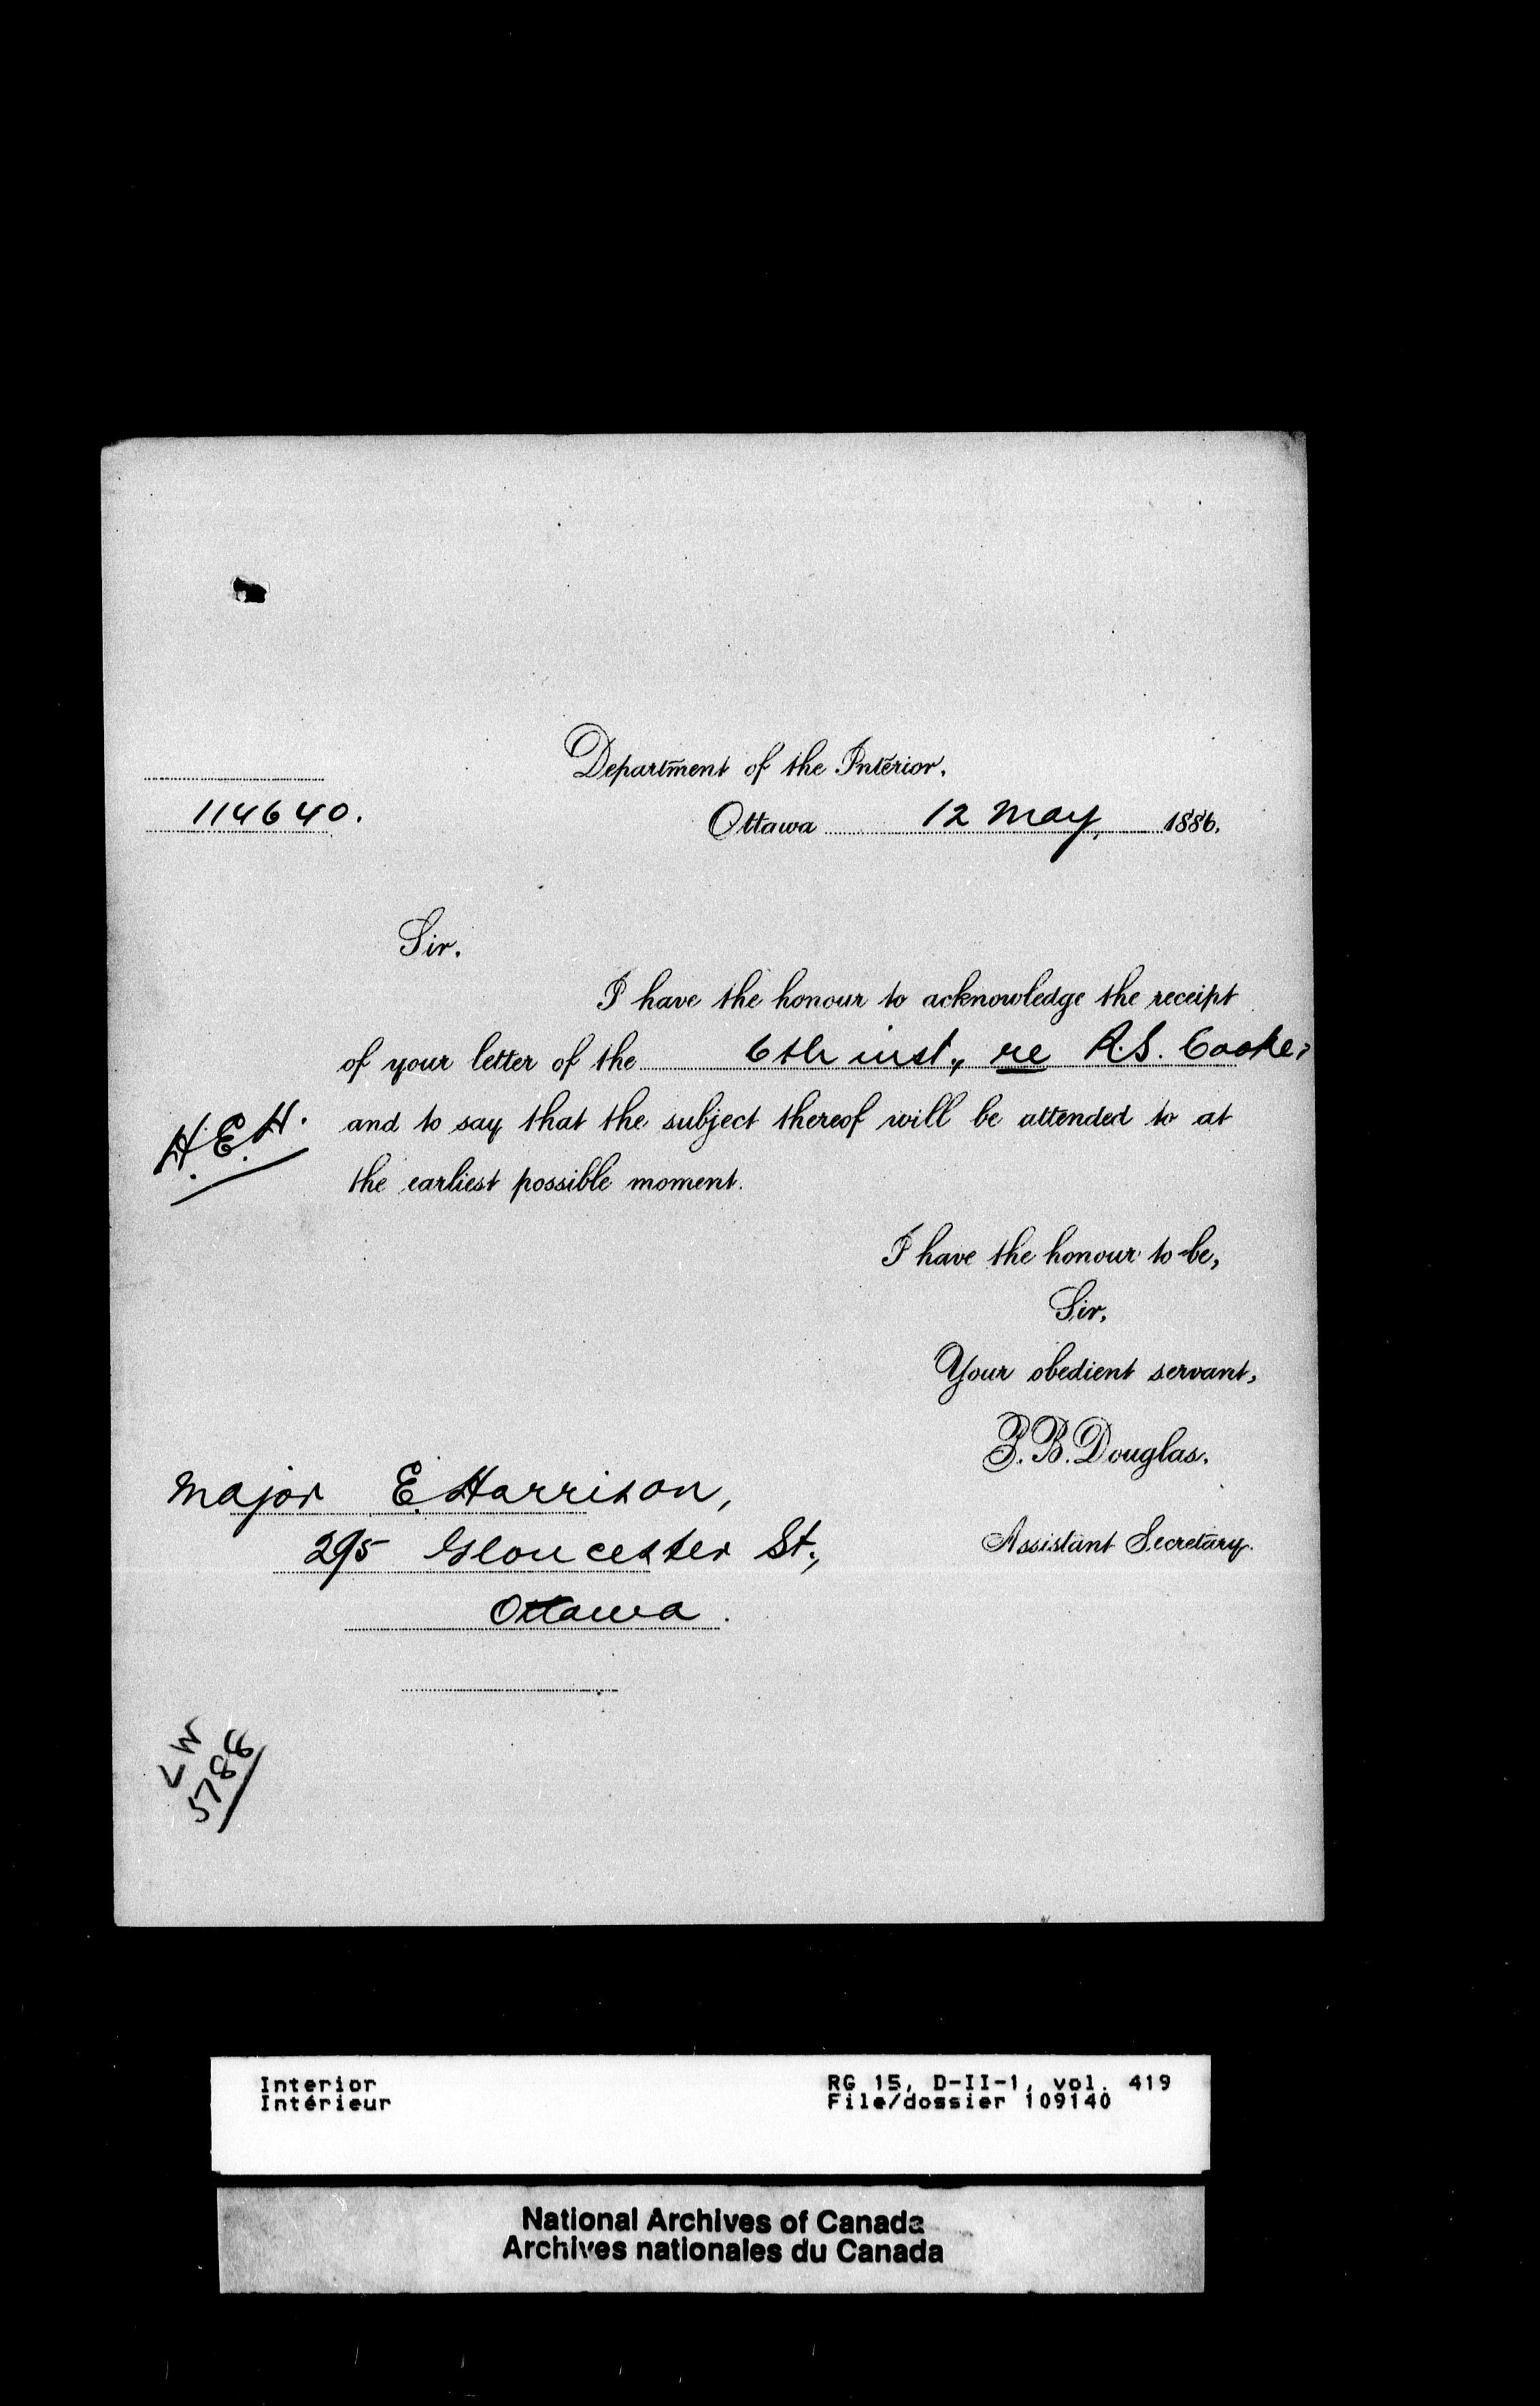 Department of the Interior.
114640.
Ottawa 12 May, 1886.
Sir.
I have the honour to acknowledge the receipt
of your letter of the 6th inst., re R.S. Cooke,
and to say that the subject thereof will be attended to at
H.E.H.
the earliest possible moment.
I have the honour to be,
Sir,
Your obedient servant,
P. B. Douglas.
Assistant Secretary.
Major E. Harrison,
295 Gloucester St.,
Ottawa.
LW
5788
Interior
Intérieur
RG 15, D-II-1, vol. 419
File/dossier 109140
National Archives of Canada
Archives nationales du Canada